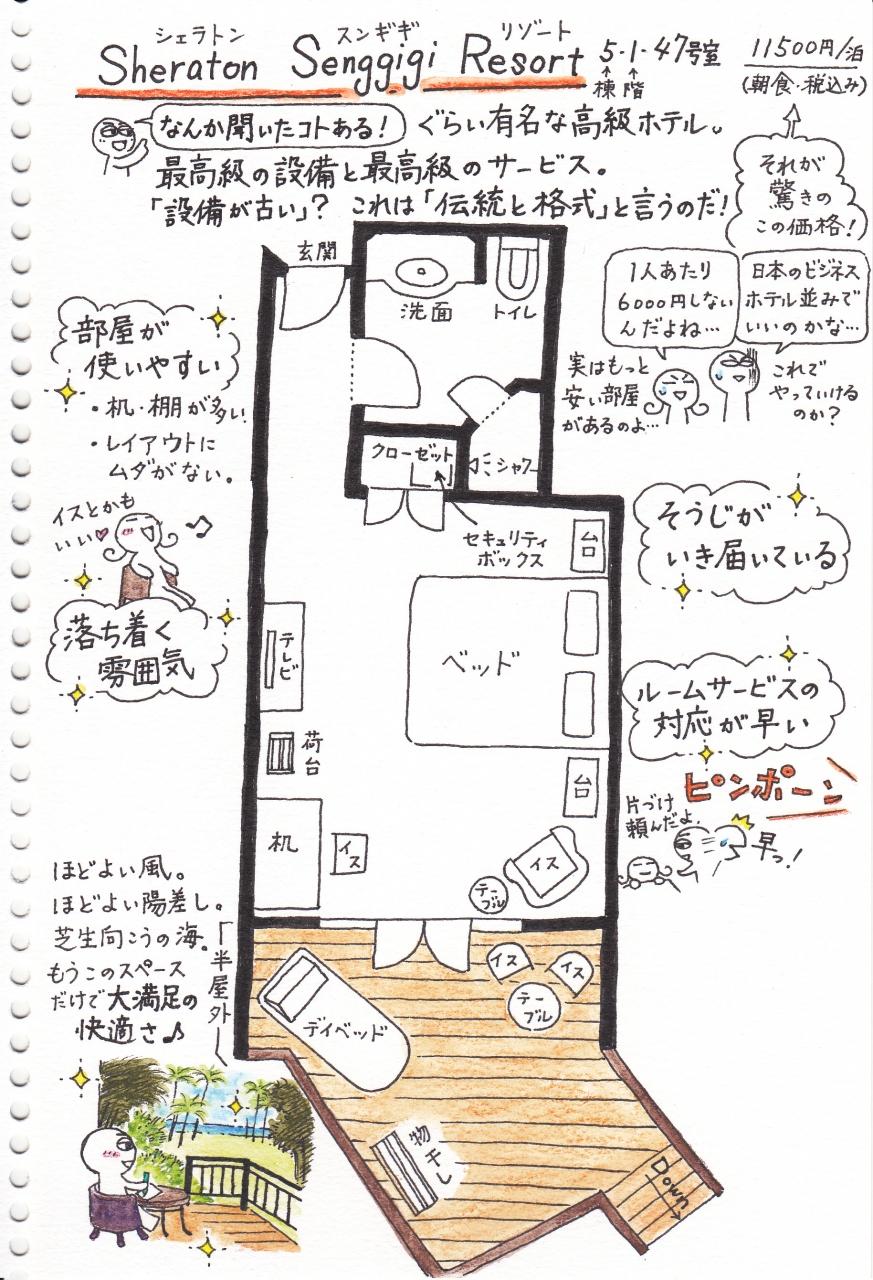 シェラトン スンギギ リゾート
Sheraton Senggigi Resort 5・1・47号室
↑棟 ↑階
11500円/泊
(朝食・税込み)
なんか聞いたコトある! ぐらい有名な高級ホテル。
最高級の設備と最高級のサービス。
「設備が古い」? これは「伝統と格式」と言うのだ!
それが
驚きの
この価格!
1人あたり
6000円しない
んだよね…
日本のビジネス
ホテル並みで
いいのかな…
実はもっと
安い部屋
があるのよ…
これで
やっていける
のか?
玄関
洗面
トイレ
クローゼット
シャワー
セキュリティ
ボックス
部屋が
使いやすい
・机・棚が多い。
・レイアウトに
ムダがない。
イスとかも
いい♡
♪
落ち着く
雰囲気
そうじが
いき届いている
ルームサービスの
対応が早い
ピンポーン
片づけ
頼んだよ。
早っ!
台
ベッド
テレビ
荷台
台
机
イス
イス
テーブル
ほどよい風。
ほどよい陽差し。
芝生向こうの海。
もうこのスペース
だけで大満足の
快適さ♪
半屋外
イス
イス
テーブル
デイベッド
物干し
Down